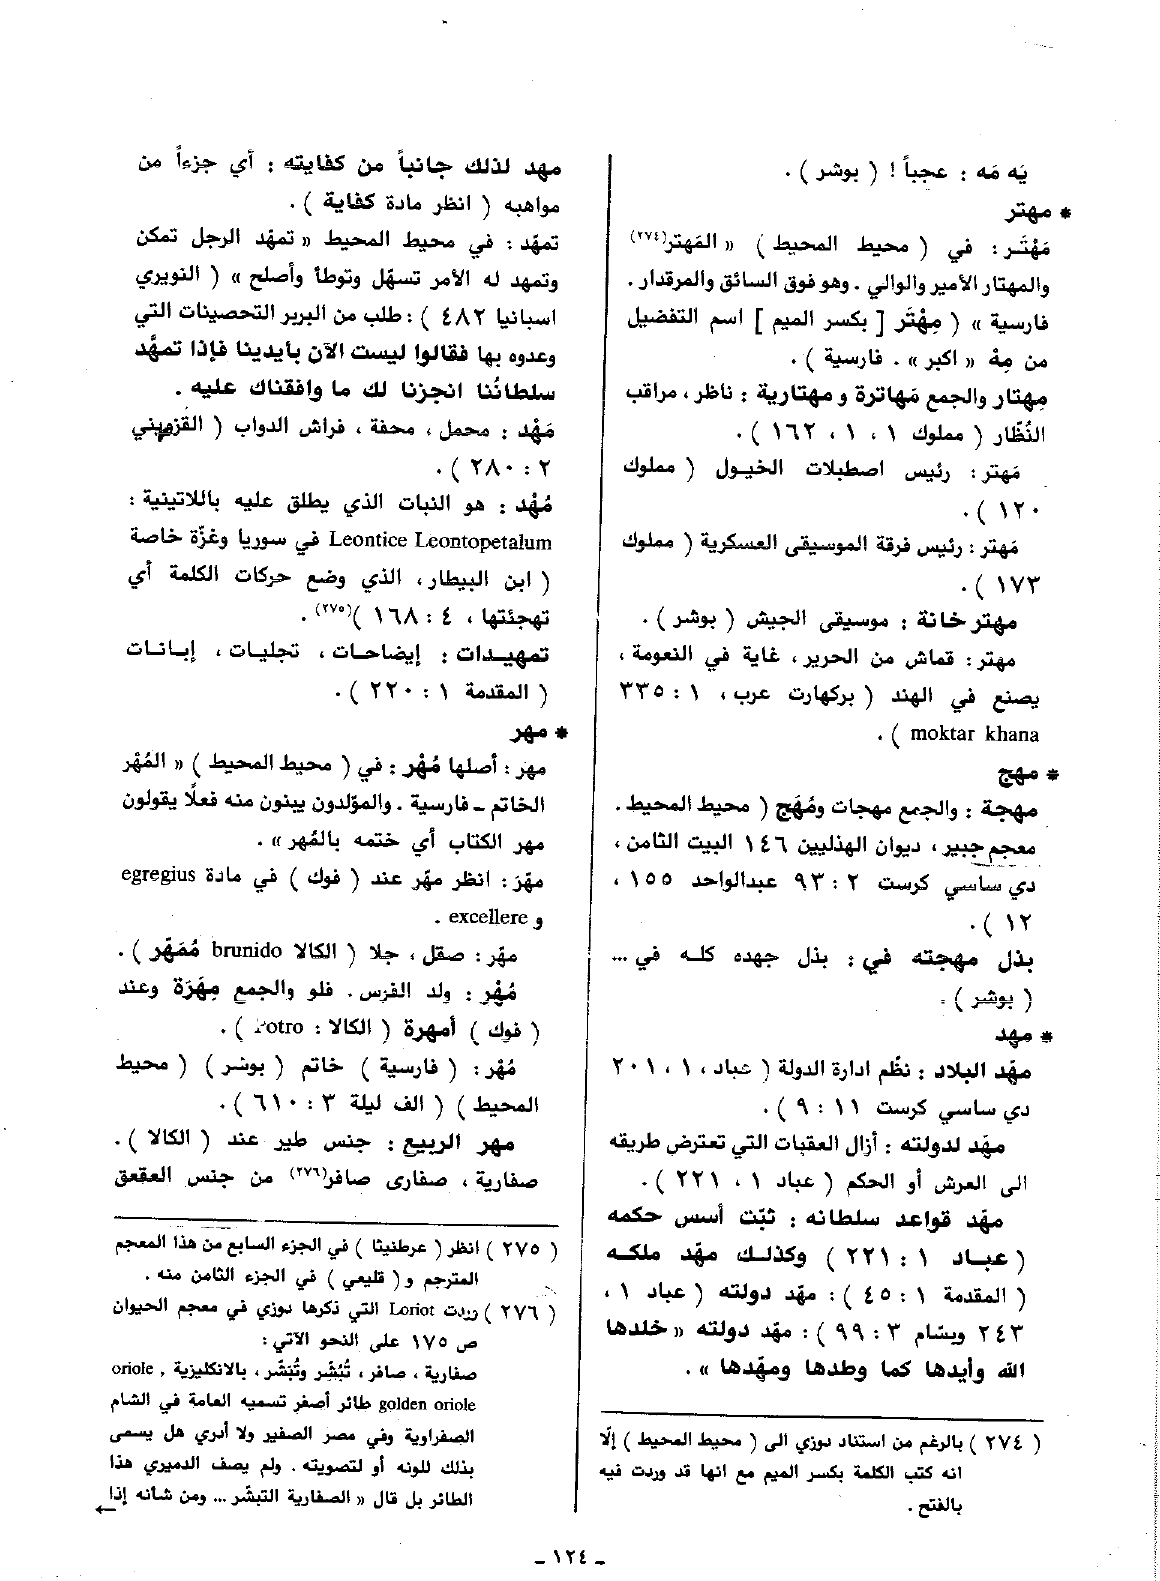 يَه مَه : عجباً ! ( بوشر ) .
* مهتر
مَهْتَر : في ( محيط المحيط ) « المَهتر(٢٧٤)
والمهتار الأمير والوالي . وهو فوق السائق والمرقدار .
فارسية » ( مِهْتَر [ بكسر الميم ] اسم التفضيل
من مِهْ « اكبر » . فارسية ) .
مِهتار والجمع مَهاترة و مهتارية : ناظر ، مراقب
النُظّار ( مملوك ١ ، ١ ، ١٦٢ ) .
مَهتر : رئيس اصطبلات الخيول ( مملوك
١٢٠ ) .
مَهتر : رئيس فرقة الموسيقى العسكرية ( مملوك
١٧٣ ) .
مهتر خانة : موسيقى الجيش ( بوشر ) .
مهتر : قماش من الحرير ، غاية في النعومة ،
يصنع في الهند ( بركهارت عرب ، ١ : ٣٣٥
moktar khana ) .
* مهج
مهجة : والجمع مهجات ومُهَج ( محيط المحيط .
معجم جبير ، ديوان الهذليين ١٤٦ البيت الثامن ،
دي ساسي كرست ٢ : ٩٣ عبدالواحد ١٥٥ ،
١٢ ) .
بذل مهجته في : بذل جهده كله في ...
( بوشر ) .
* مهد
مهّد البلاد : نظّم ادارة الدولة ( عباد ، ١ ، ٢٠١
دي ساسي كرست ١١ : ٩ ) .
مهّد لدولته : أزال العقبات التي تعترض طريقه
الى العرش أو الحكم ( عباد ١ ، ٢٢١ ) .
مهّد قواعد سلطانه : ثبّت أسس حكمه
( عباد ١ : ٢٢١ ) وكذلك مهّد ملكه
( المقدمة ١ : ٤٥ ) : مهّد دولته ( عباد ١ ،
٢٤٣ وبسّام ٣ : ٩٩ ) : مهّد دولته « خلدها
الله وأيدها كما وطدها ومهّدها » .
( ٢٧٤ ) بالرغم من استناد دوزي الى ( محيط المحيط ) إلّا
انه كتب الكلمة بكسر الميم مع انها قد وردت فيه
بالفتح .
مهد لذلك جانباً من كفايته : أي جزءاً من
مواهبه ( انظر مادة كفاية ) .
تمهّد : في محيط المحيط « تمهّد الرجل تمكن
وتمهد له الأمر تسهّل وتوطأ وأصلح » ( النويري
اسبانيا ٤٨٢ ) : طلب من البربر التحصينات التي
وعدوه بها فقالوا ليست الآن بأيدينا فإذا تمهَّد
سلطانُنا انجزنا لك ما وافقناك عليه .
مَهْد : محمل ، محفة ، فراش الدواب ( القزويني
٢ : ٢٨٠ ) .
مُهْد : هو النبات الذي يطلق عليه باللاتينية :
Leontice Leontopetalum في سوريا وغزّة خاصة
( ابن البيطار ، الذي وضع حركات الكلمة أي
تهجئتها ، ٤ : ١٦٨ )(٢٧٥) .
تمهيدات : إيضاحات ، تجليات ، إبانات
( المقدمة ١ : ٢٢٠ ) .
* مهر
مهر : أصلها مُهْر : في ( محيط المحيط ) « المُهْر
الخاتم – فارسية . والمؤلدون يبنون منه فعلًا يقولون
مهر الكتاب أي ختمه بالمُهر » .
مهّرَ : انظر مهّر عند ( فوك ) في مادة egregius
و excellere .
مهّر : صقل ، جلا ( الكالا brunido مُمَهّر ) .
مُهْر : ولد الفرس . فلو والجمع مِهَرَة وعند
( فوك ) أمهرة ( الكالا : Potro ) .
مُهْر : ( فارسية ) خاتم ( بوشر ) ( محيط
المحيط ) ( الف ليلة ٣ : ٦١٠ ) .
مهر الربيع : جنس طير عند ( الكالا ) .
صفارية ، صفارى صافر(٢٧٦) من جنس العقعق
( ٢٧٥ ) انظر ( عرطنيثا ) في الجزء السابع من هذا المعجم
المترجم و ( قليعي ) في الجزء الثامن منه .
( ٢٧٦ ) وردت Loriot التي ذكرها دوزي في معجم الحيوان
ص ١٧٥ على النحو الآتي :
صفارية ، صافر ، تُبُشّر وتُبَشّر ، بالانكليزية , oriole
golden oriole طائر أصفر تسميه العامة في الشام
الصفراوية وفي مصر الصفير ولا أدري هل يسمى
بذلك للونه أو لتصويته . ولم يصف الدميري هذا
الطائر بل قال « الصفارية التبشّر ... ومن شانه إذا
←
– ١٢٤ –